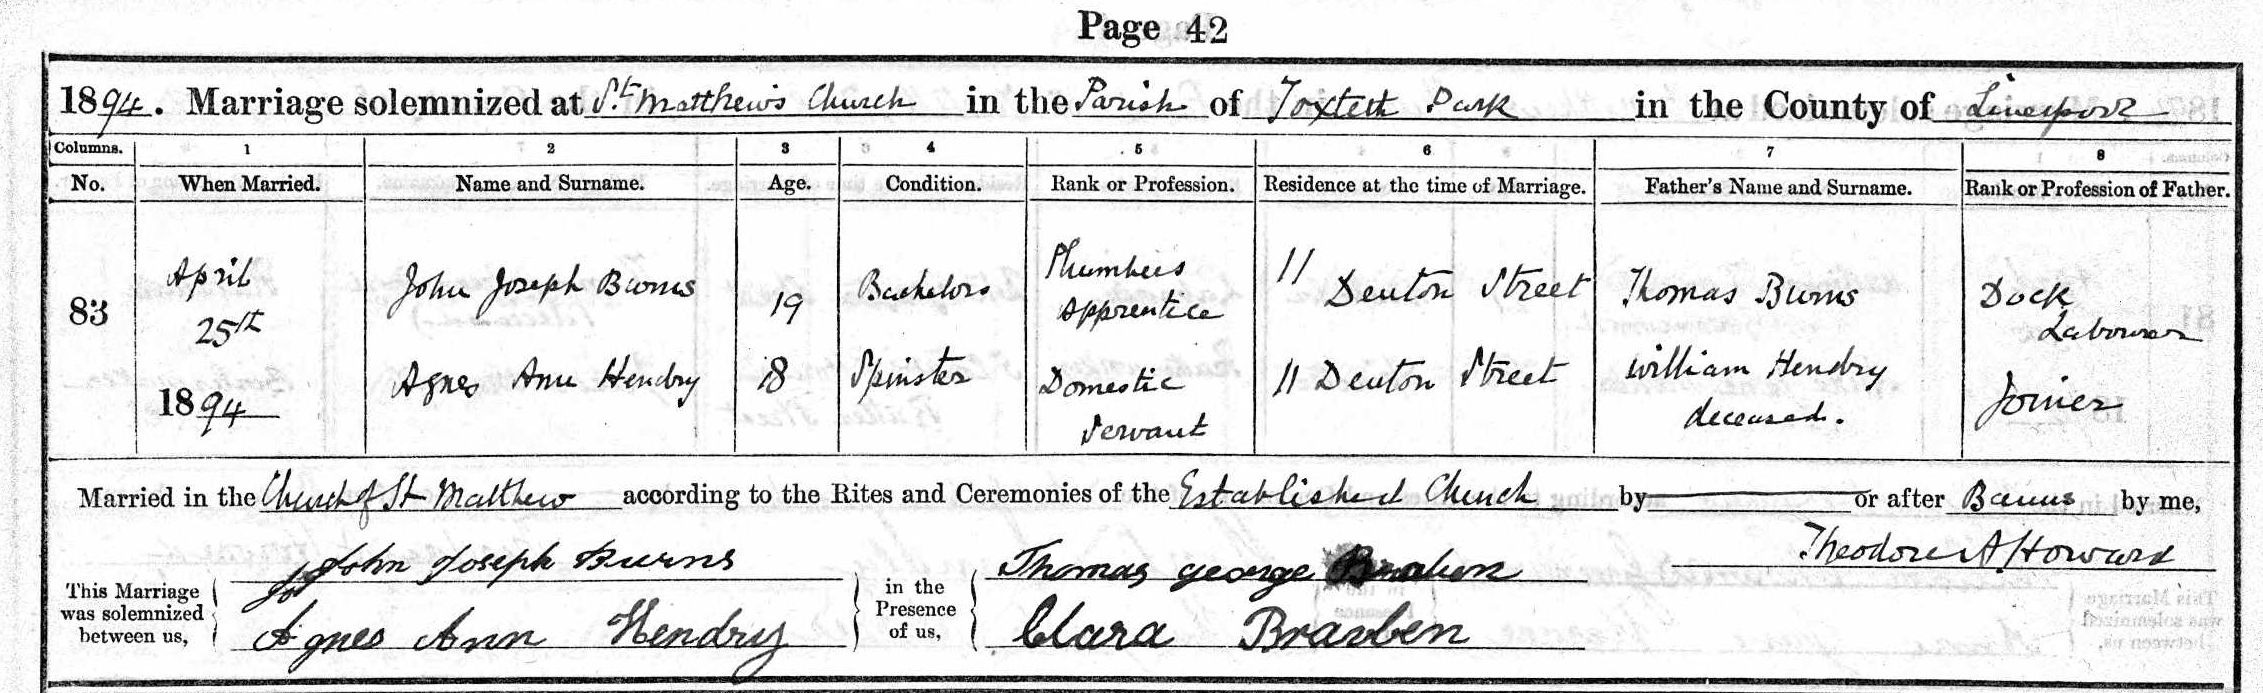 Page 42
1894. Marriage solemnized at St Matthew's Church in the Parish of Toxteth Park in the County of Liverpool
Columns. 1 2 3 4 5 6 7 8
No. When Married. Name and Surname. Age. Condition. Rank or Profession. Residence at the time of Marriage. Father's Name and Surname. Rank or Profession of Father.
83 April 25th 1894
John Joseph Burns 19 Bachelor Plumber's Apprentice 11 Denton Street Thomas Burns Dock Labourer
Agnes Ann Hendry 18 Spinster Domestic Servant 11 Denton Street William Hendry deceased. Joiner
Married in the Church of St Matthew according to the Rites and Ceremonies of the Established Church by or after Banns by me,
Theodore A. Howard
This Marriage was solemnized between us,
John Joseph Burns
Agnes Ann Hendry
in the Presence of us,
Thomas George Braben
Clara Braben